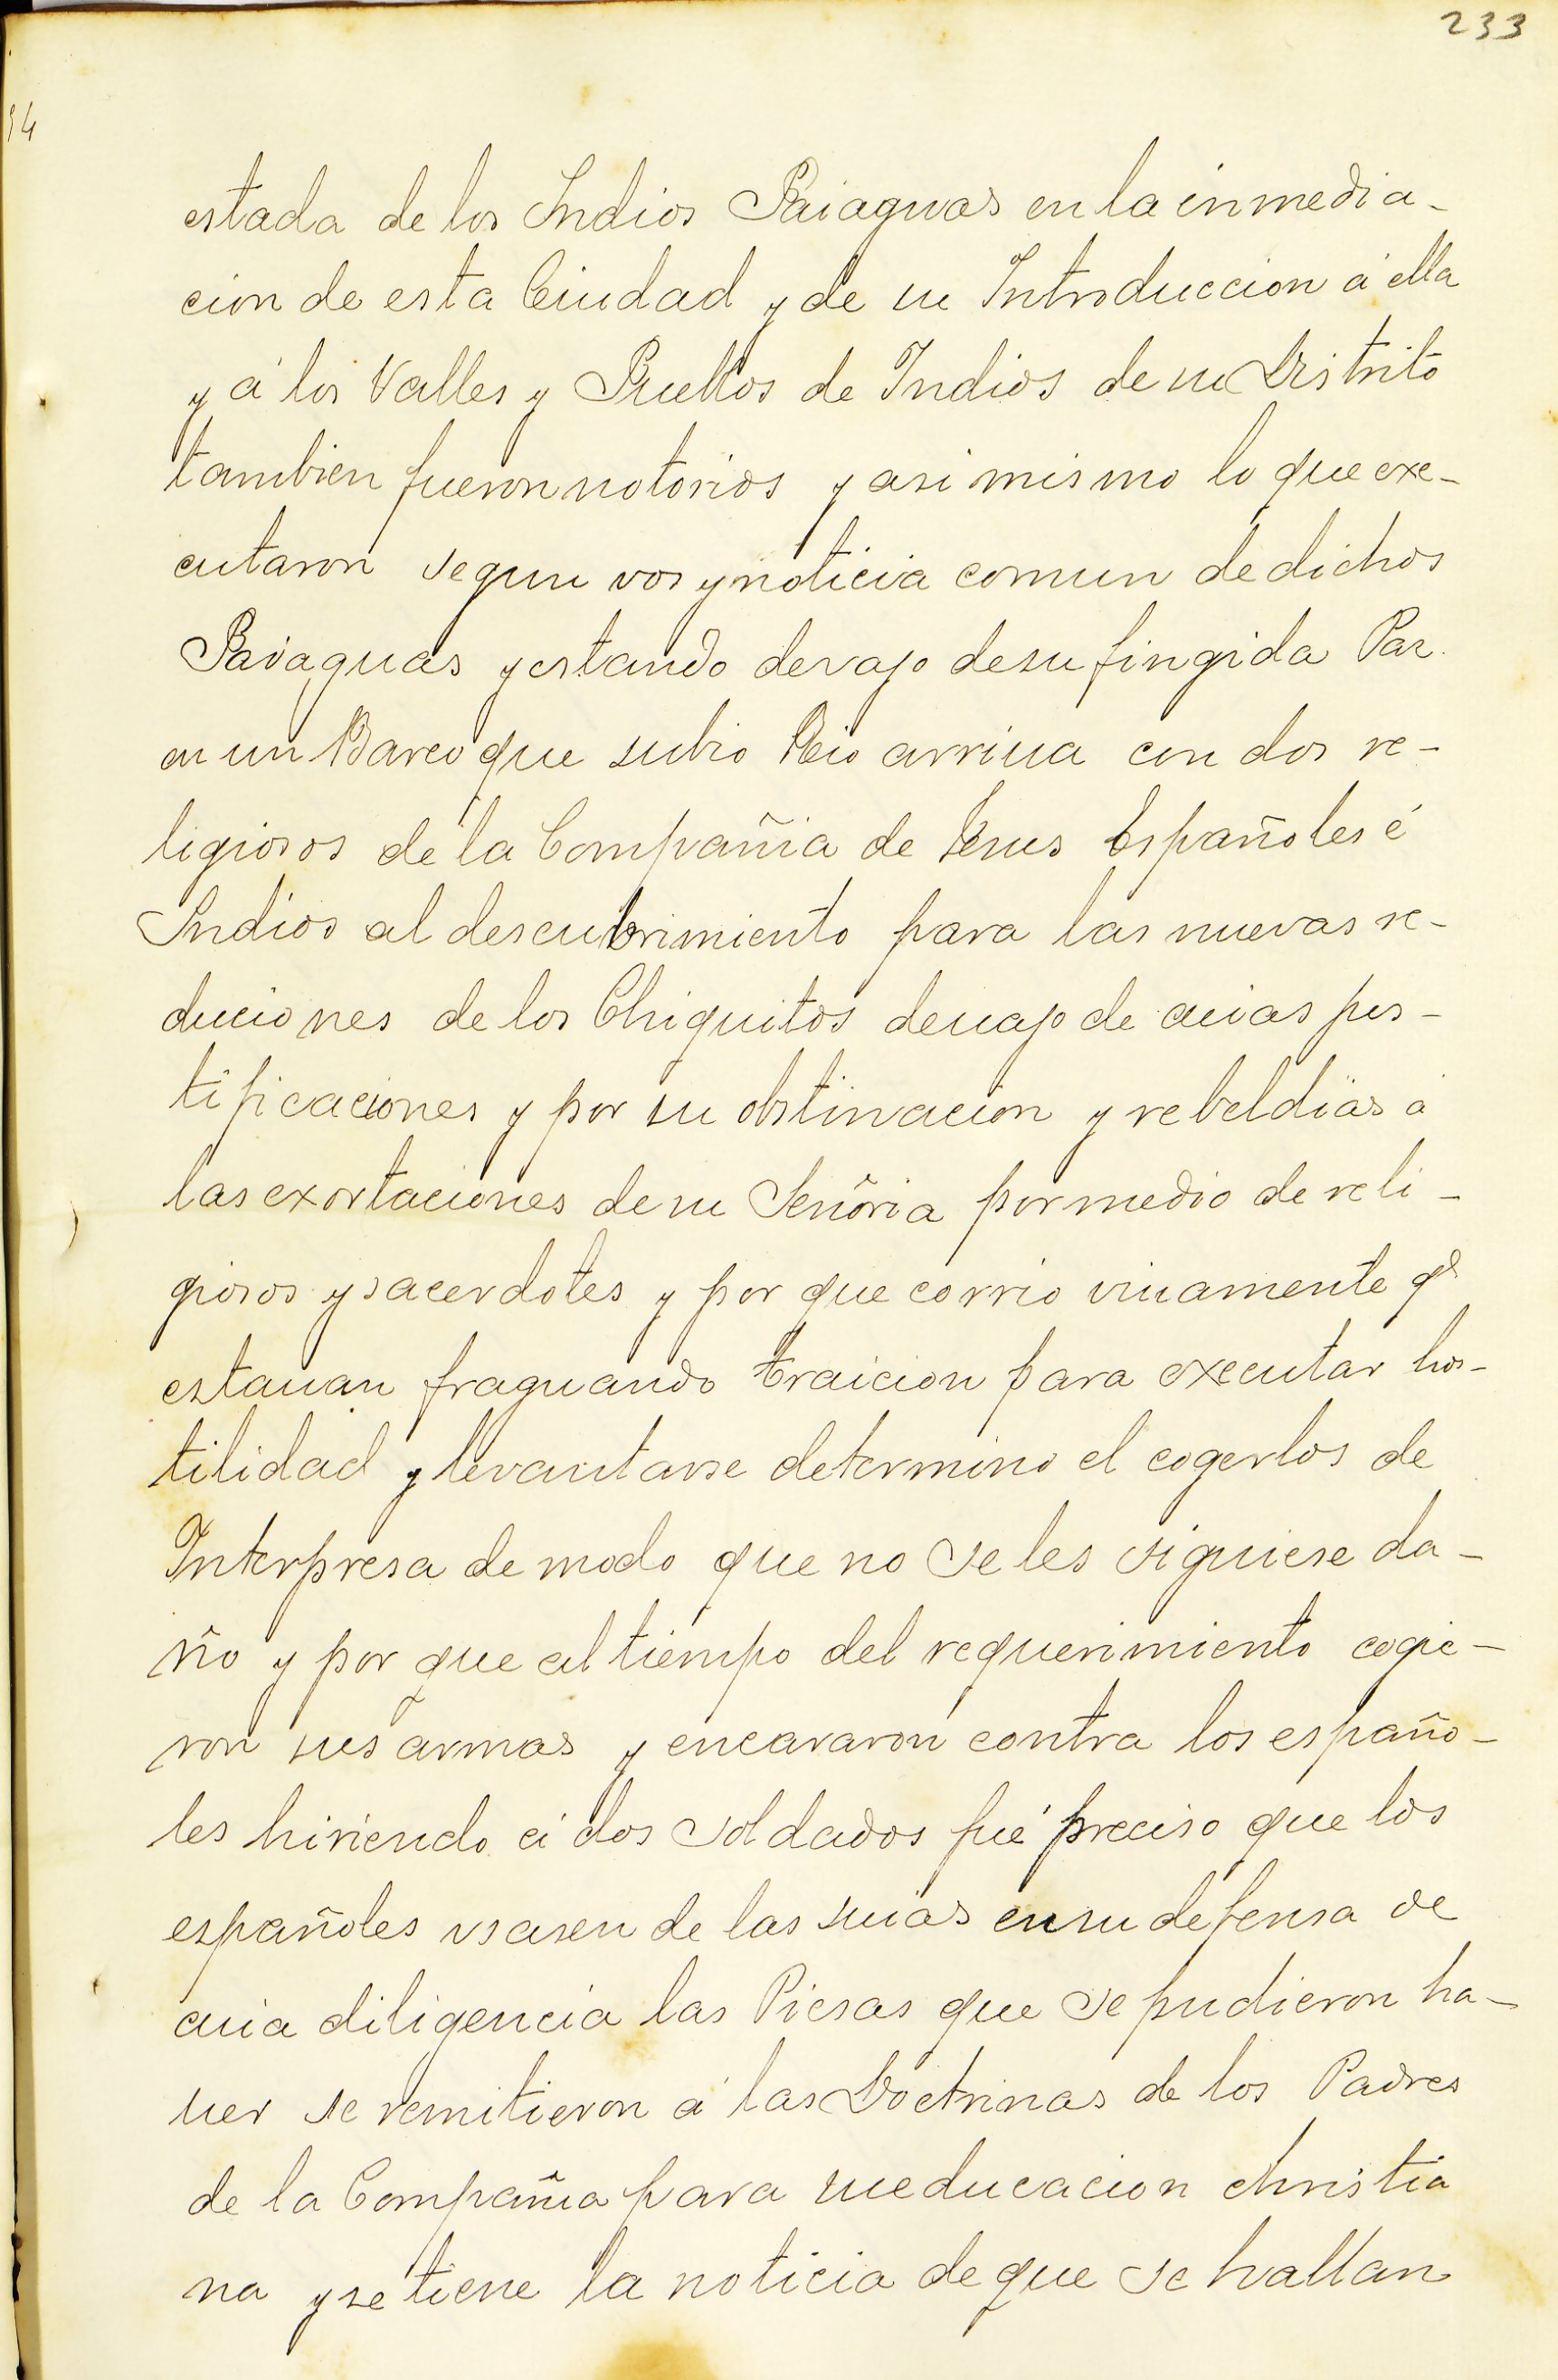 233
94
estada de los Indios Paiaguas en la inmedia-
cion de esta Ciudad y de su Introduccion á ella
y á los Valles y Pueblos de Indios de su Distrito
tambien fueron notorios y asi mismo lo que exe-
cutaron segun vos y noticia comun de dichos
Paiaguas y estando devajo de su fingida Paz
en un Barco que subio Rio arriua con dos re-
ligiosos de la Compañia de Jesus Españoles é
Indios al descubrimiento para las nuevas re-
duciones de los Chiquitos deuajo de cuias jus-
tificaciones y por su obstinacion y rebeldias á
las exortaciones de su Señoria por medio de reli-
giosos y sacerdotes y por que corrio viuamente qe
estauan fraguando traicion para executar hos-
tilidad y levantarse determino el cogerlos de
Interpresa de modo que no se les siguiese da-
ño y por que al tiempo del requerimiento cogie-
ron sus armas y encararon contra los españo-
les hiriendo á dos soldados fué preciso que los
españoles usasen de las suias en su defensa de
cuia diligencia las Piesas que se pudieron ha-
uer se remitieron á las Doctrinas de los Padres
de la Compañia para su educacion christia
na y se tiene la noticia de que se hallan